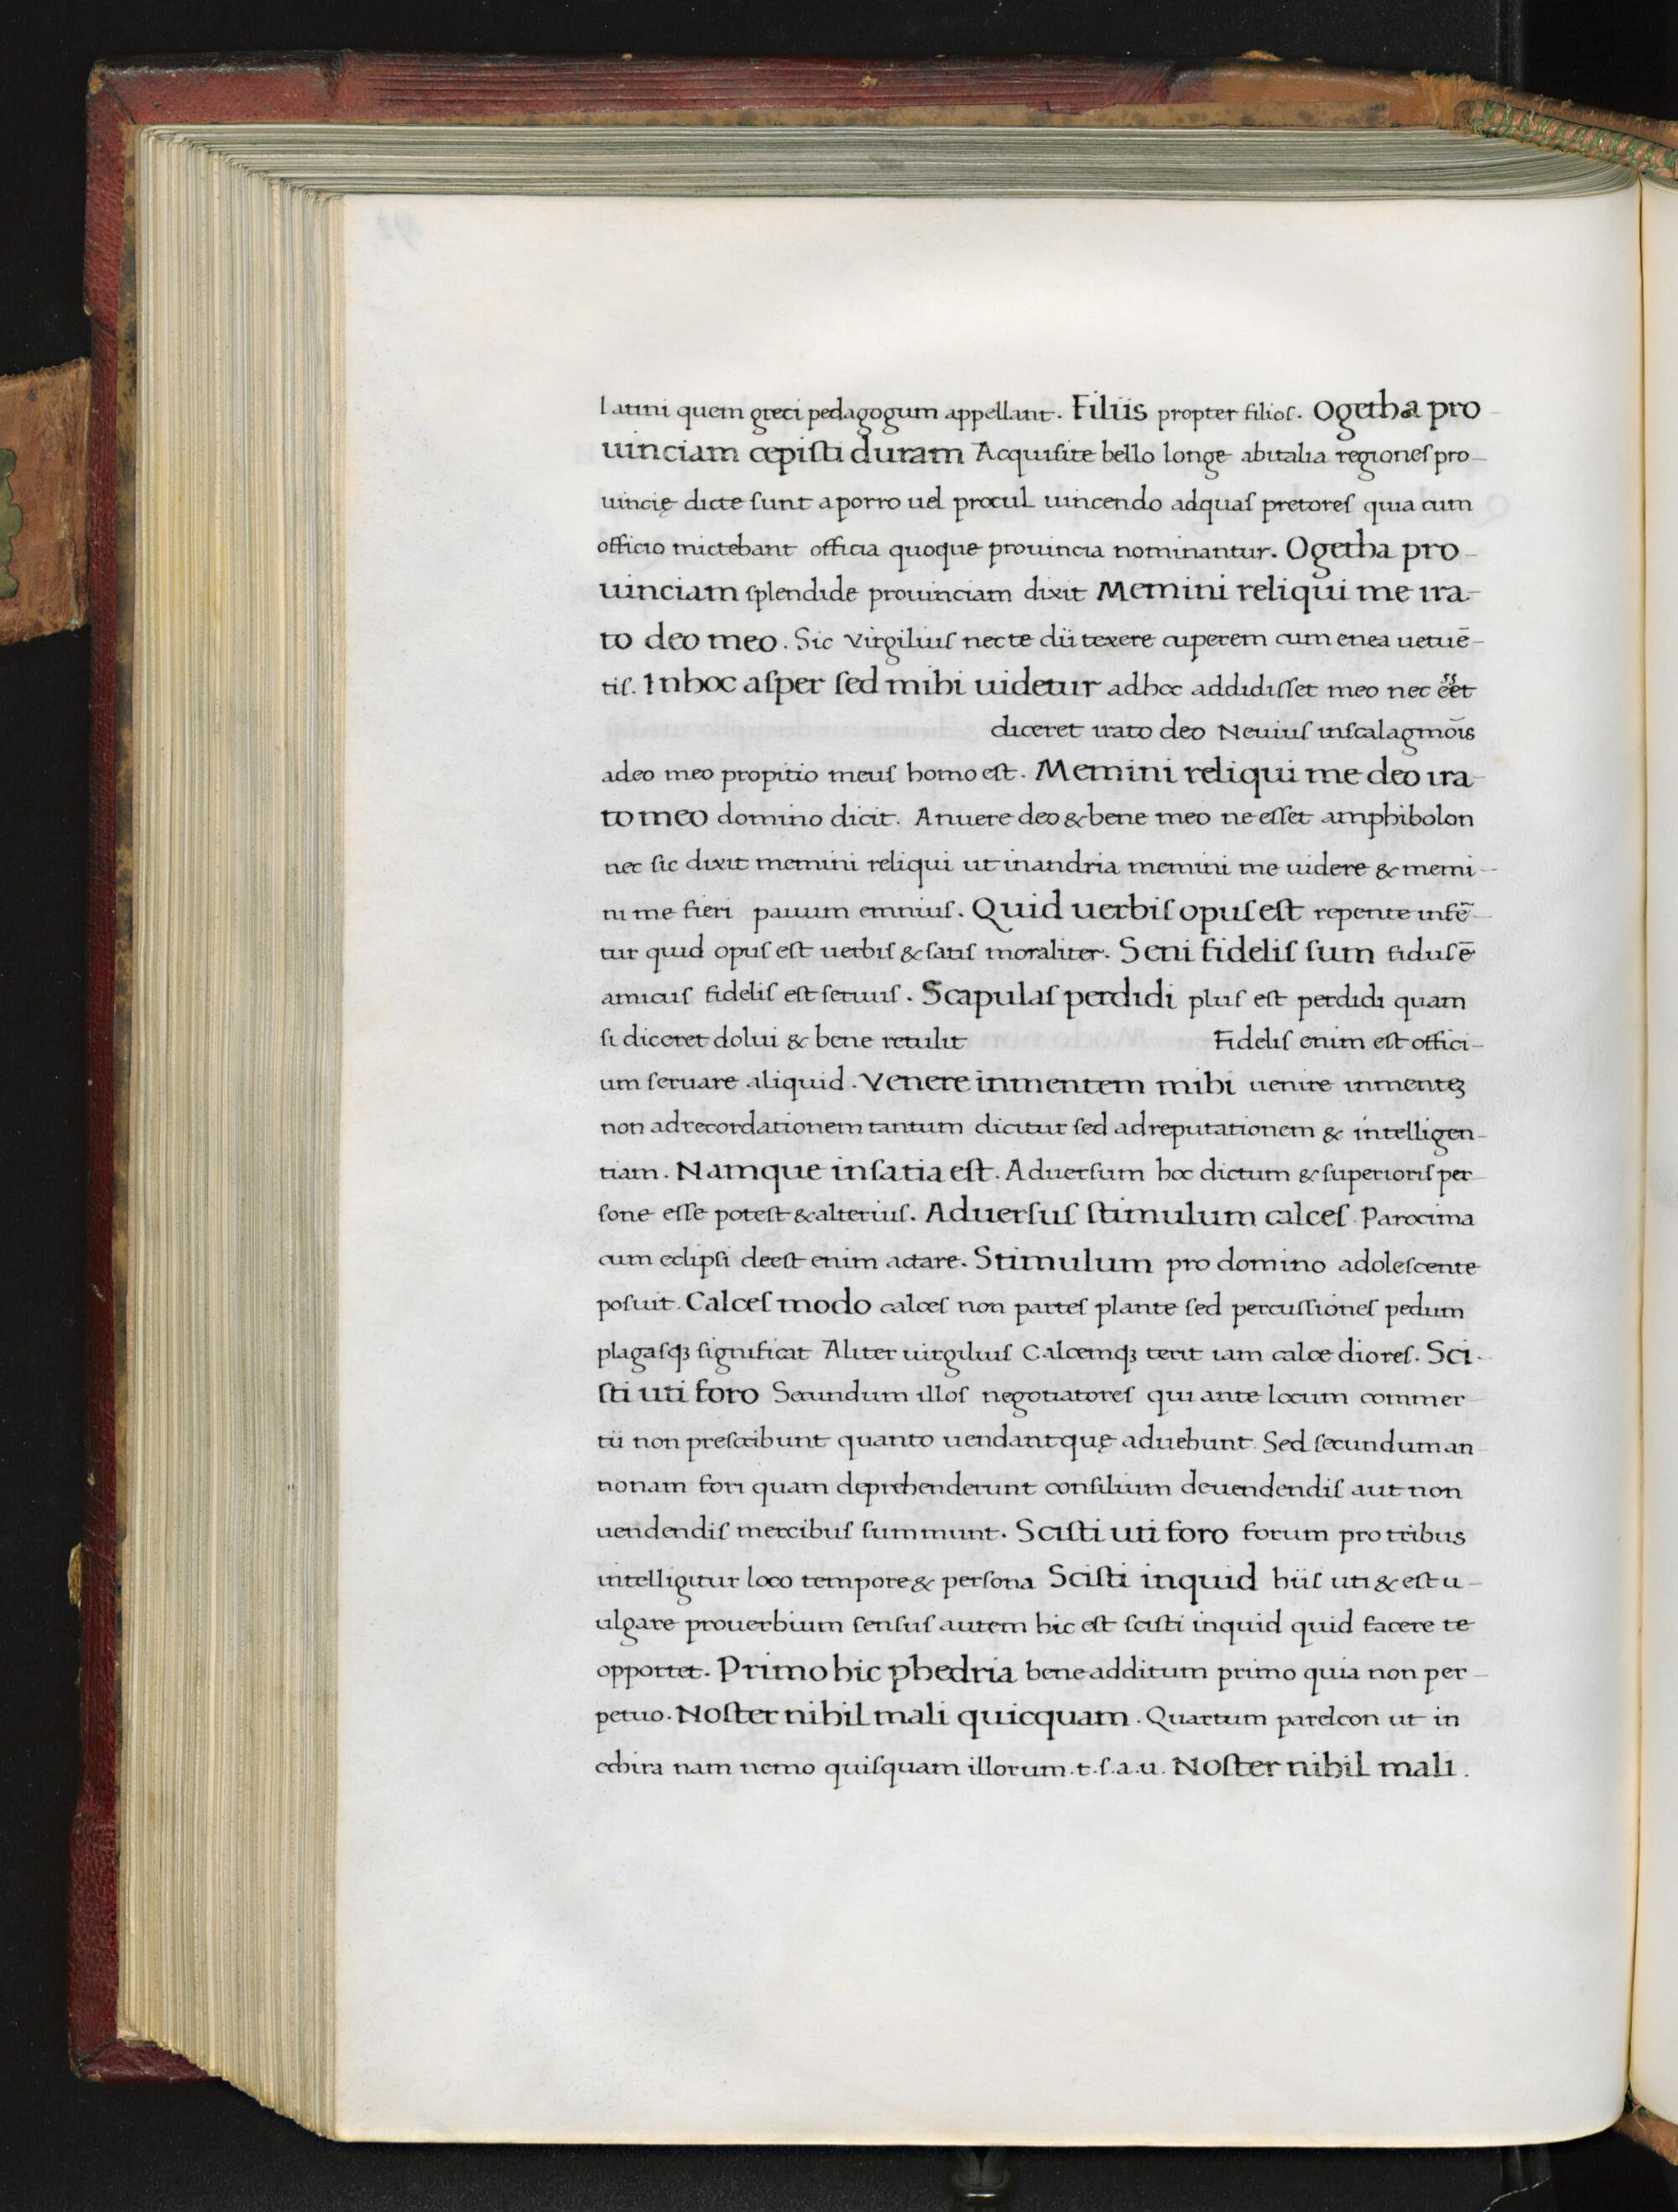 latini quem greci pedagogum appellant. Filiis propter filios. Ogetha pro-
uinciam cepisti duram Acquisite bello longe abitalia regiones pro-
uincię dicte sunt aporro uel procul uincendo adquas pretores quia cum
officio mictebant officia quoque prouincia nominantur. Ogetha pro-
uinciam splendide prouinciam dixit Memini reliqui me ira-
to deo meo. Sic Virgilius nec te dii texere cuperem cum enea uetuē-
tis. Inhoc asper sed mihi uidetur adhoc addidisset meo nec eēt
diceret irato deo Neuius inscalagmōis
adeo meo propitio meus homo est. Memini reliqui me deo ira-
to meo domino dicit. Anuere deo & bene meo ne esset amphibolon
nec sic dixit memini reliqui ut inandria memini me uidere & memi-
ni me fieri pauum emnius. Quid uerbis opus est repente infē-
tur quid opus est uerbis & satis moraliter. Seni fidelis sum fidus ē
amicus fidelis est seruus. Scapulas perdidi plus est perdidi quam
si diceret dolui & bene retulit Fidelis enim est offici-
um seruare aliquid. Venere inmentem mihi uenire inmenteꝫ
non adrecordationem tantum dicitur sed adreputationem & intelligen-
tiam. Namque insatia est. Aduersum hoc dictum & superioris per-
sone esse potest & alterius. Aduersus stimulum calces. Parocima
cum eclipsi deest enim actare. Stimulum pro domino adolescente
posuit. Calces modo calces non partes plante sed percussiones pedum
plagasqꝫ significat Aliter uirgilius Calcemqꝫ terit iam calce diores. Sci-
sti uti foro Secundum illos negotiatores qui ante locum commer-
tii non prescribunt quanto uendant quę aduehunt. Sed secundum an-
nonam fori quam deprehenderunt consilium deuendendis aut non
uendendis mercibus summunt. Scisti uti foro forum pro tribus
intelligitur loco tempore & persona Scisti inquid hiis uti & est u-
ulgare prouerbium sensus autem hic est scisti inquid quid facere te
opportet. Primo hic phedria bene additum primo quia non per-
petuo. Noster nihil mali quicquam. Quartum parelcon ut in
echira nam nemo quisquam illorum.t.s.a.u. Noster nihil mali.